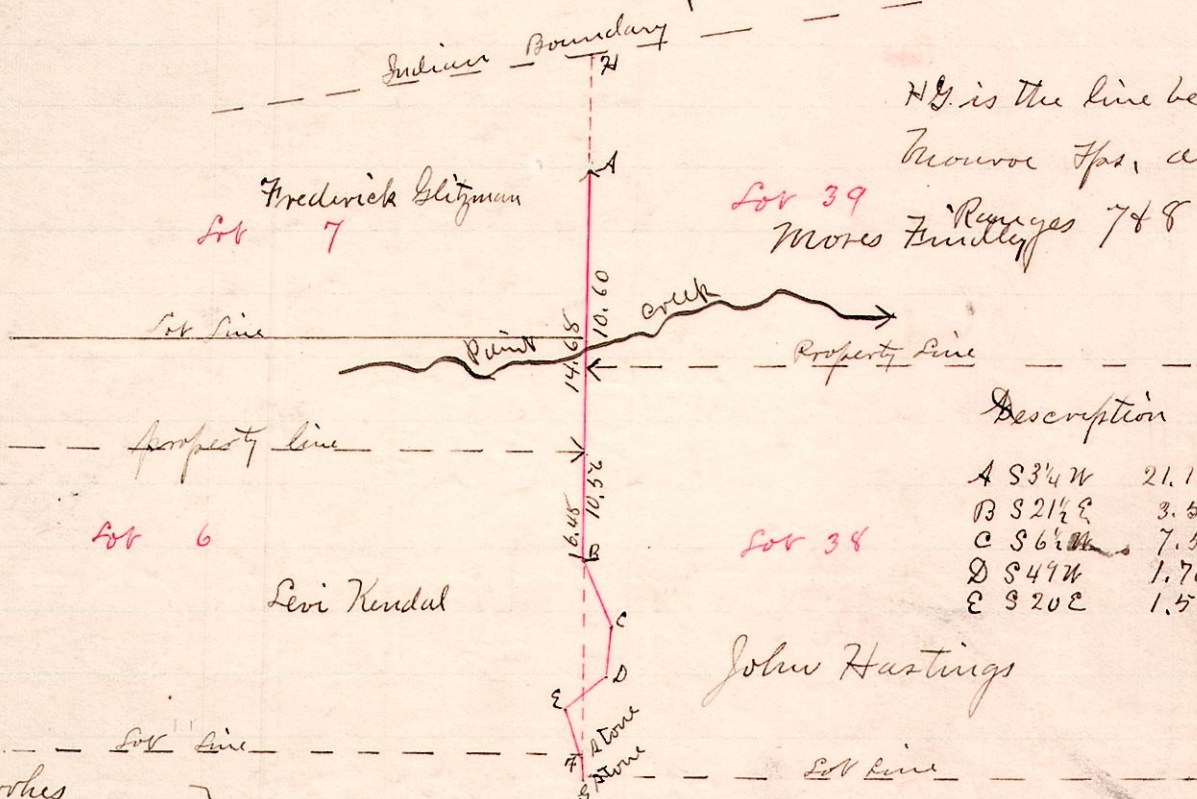 Indian Boundary
H
HG. is the line be
Monroe Tps, a
Ranges 7&8
A
Frederick Glitzman
Lot 7
Lot 39
Moses Findley
Lot Line
Paint Creek
14.68
10.60
Property Line
property line
Description
A S3¼W 21.1
B S21½E 3.5
C S6½W 7.5
D S49W 1.7
E S20E 1.5
16.48
10.52
B
Lot 6
Lot 38
Levi Kendal
C
D
E
John Hastings
Lot Line
F Stone
G Stone
Lot Line